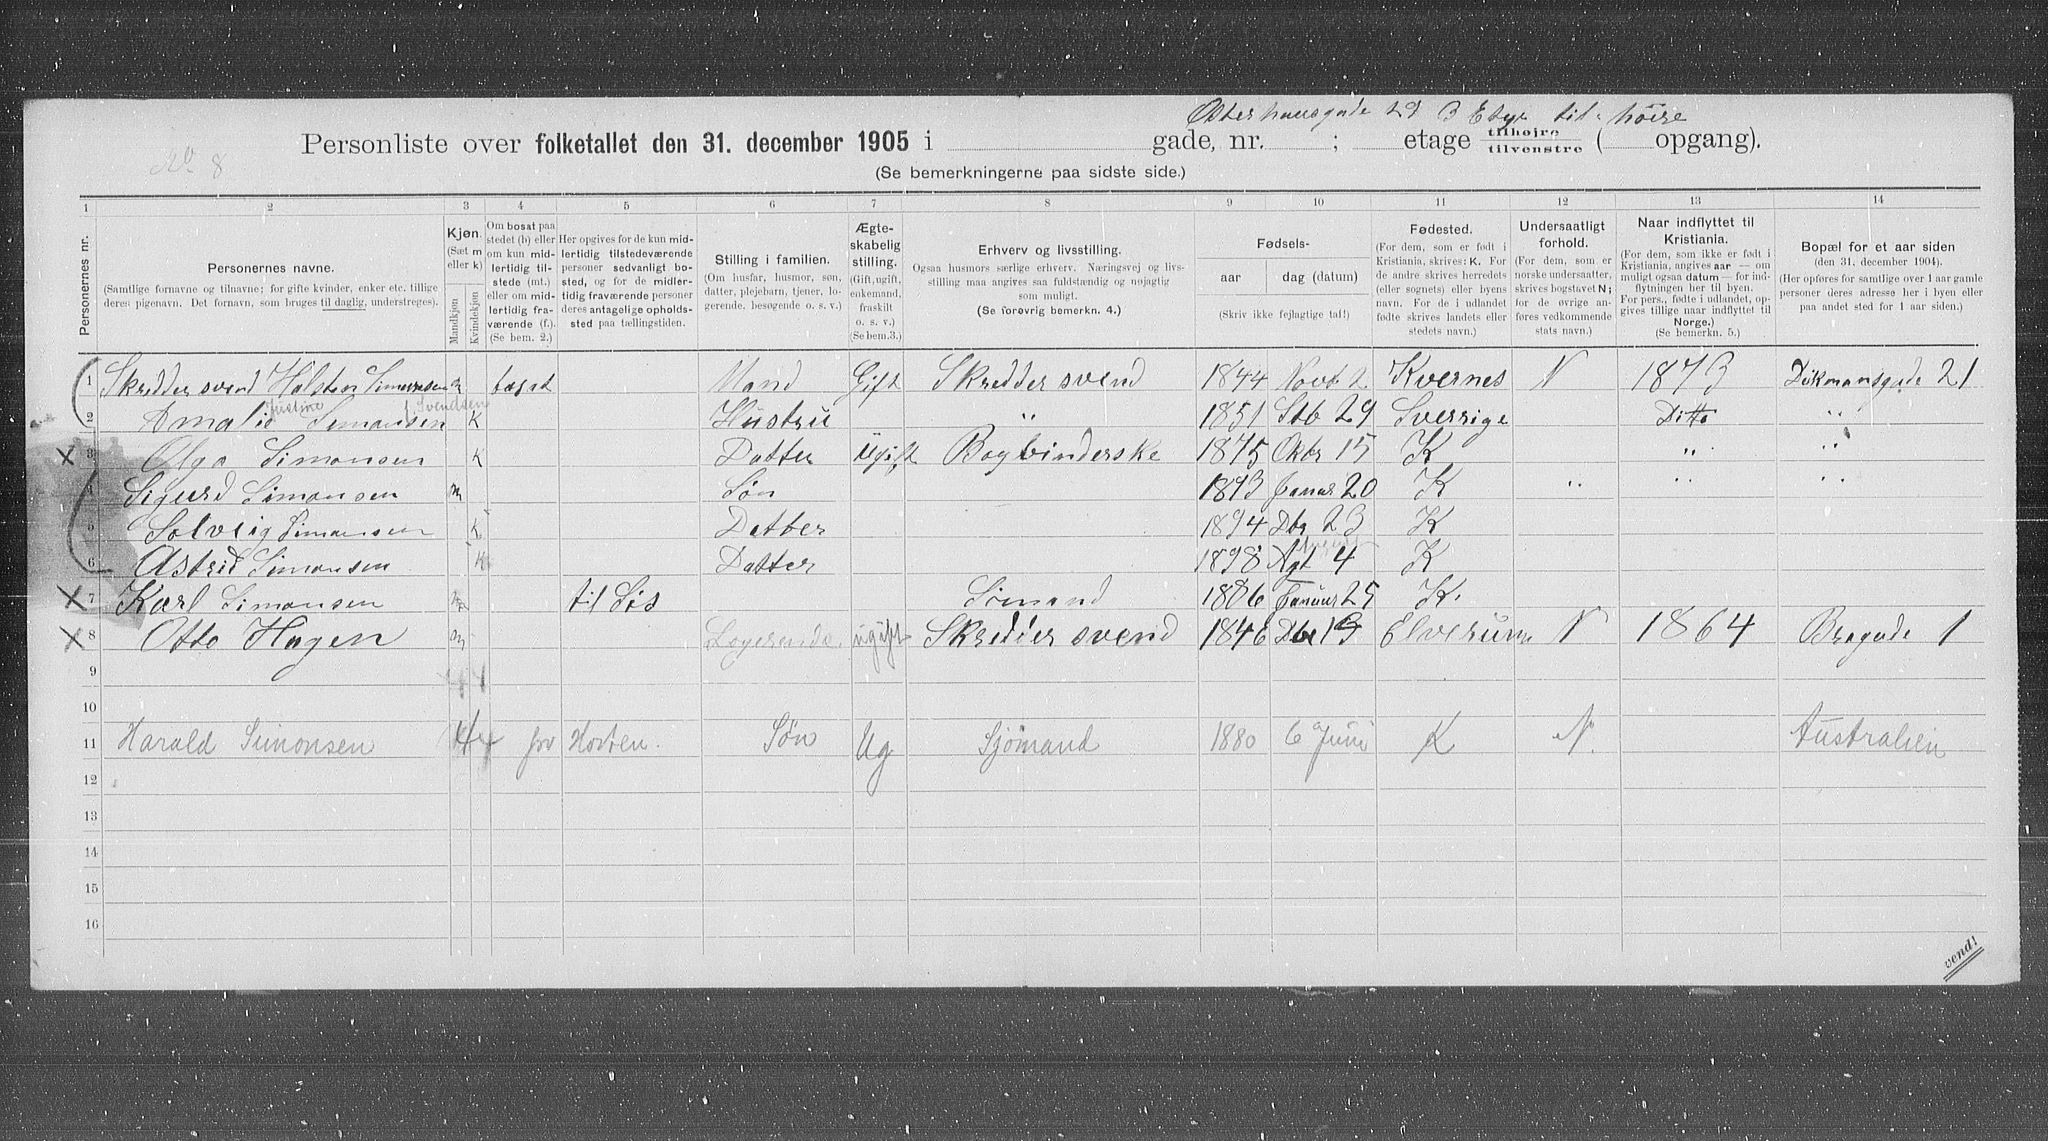 Østerhausgade 29 3 Etge til høire
No 8
Personliste over folketallet den 31. december 1905 i gade, nr. ; etage tilhøjre tilvenstre ( opgang).
(Se bemerkningerne paa sidste side.)
1 2 3 4 5 6 7 8 9 10 11 12 13 14
Personernes nr.
Personernes navne.
(Samtlige fornavne og tilnavne; for gifte kvinder, enker etc. tillige deres pigenavn. Det fornavn, som bruges til daglig, understreges).
Kjøn.
(Sæt m eller k)
Mandkjøn
Kvindekjøn
Om bosat paa stedet (b) eller om kun midlertidig tilstede (mt.) eller om midlertidig fraværende (f.) (Se bem. 2.)
Her opgives for de kun midlertidig tilstedeværende personer sedvanligt bosted, og for de midlertidig fraværende personer deres antagelige opholdssted paa tællingstiden.
Stilling i familien.
(Om husfar, husmor, søn, datter, plejebarn, tjener, logerende, besøgende o. s. v.)
Ægteskabelig stilling.
(Gift, ugift, enkemand, fraskilt o. s. v.)
(Se bem. 3.)
Erhverv og livsstilling.
Ogsaa husmors særlige erhverv. Næringsvej og livsstilling maa angives saa fuldstændig og nøjagtig som muligt.
(Se forøvrig bemerkn. 4.)
Fødsels-
aar
dag (datum)
(Skriv ikke fejlagtige tal!)
Fødested.
(For dem, som er født i Kristiania, skrives: K. For de andre skrives herredets (eller sognets) eller byens navn. For de i udlandet fødte skrives landets eller stedets navn.)
Undersaatligt forhold.
(For dem, som er norske undersaatter, skrives bogstavet N; for de øvrige anføres vedkommende stats navn.)
Naar indflyttet til Kristiania.
(For dem, som ikke er født i Kristiania, angives aar — om muligt ogsaa datum — for indflytningen her til byen. For pers., fødte i udlandet, opgives tillige naar indflyttet til Norge.)
(Se bemerkn. 5.)
Bopæl for et aar siden
(den 31. december 1904).
(Her opføres for samtlige over 1 aar gamle personer deres adresse her i byen eller paa andet sted for 1 aar siden.)
1 Skreddersvend Halsten Simonsen m bosat Mand Gift Skreddersvend 1844 Novb 2 Kvernes N 1873 Dikmansgade 21
Justine f. Svendsen
2 Amalie Simonsen K Hustru " 1851 Stb 29 Sverrige Ditto "
3 Olga Simonsen K Datter Ugift Bogbinderske 1875 Oktbr 15 K " "
4 Sigurd Simonsen m Søn 1893 Januar 20 K " " "
5 Solveig Simonsen K Datter 1894 Dbr 23 K
6 Astrid Simonsen K Datter 1898 Agt 4 K
August
7 Karl Simonsen m til Søs Sømand 1886 Januar 25 K.
8 Otto Hagen m Logerende ugift Skreddersvend 1846 Dbr 19 Elverum N 1864 Brogade 1
9
10
11 Harald Simonsen frv Horten. Søn Ug Sjømand 1880 6 Juni K N. Australien
12
13
14
15
16
vend!